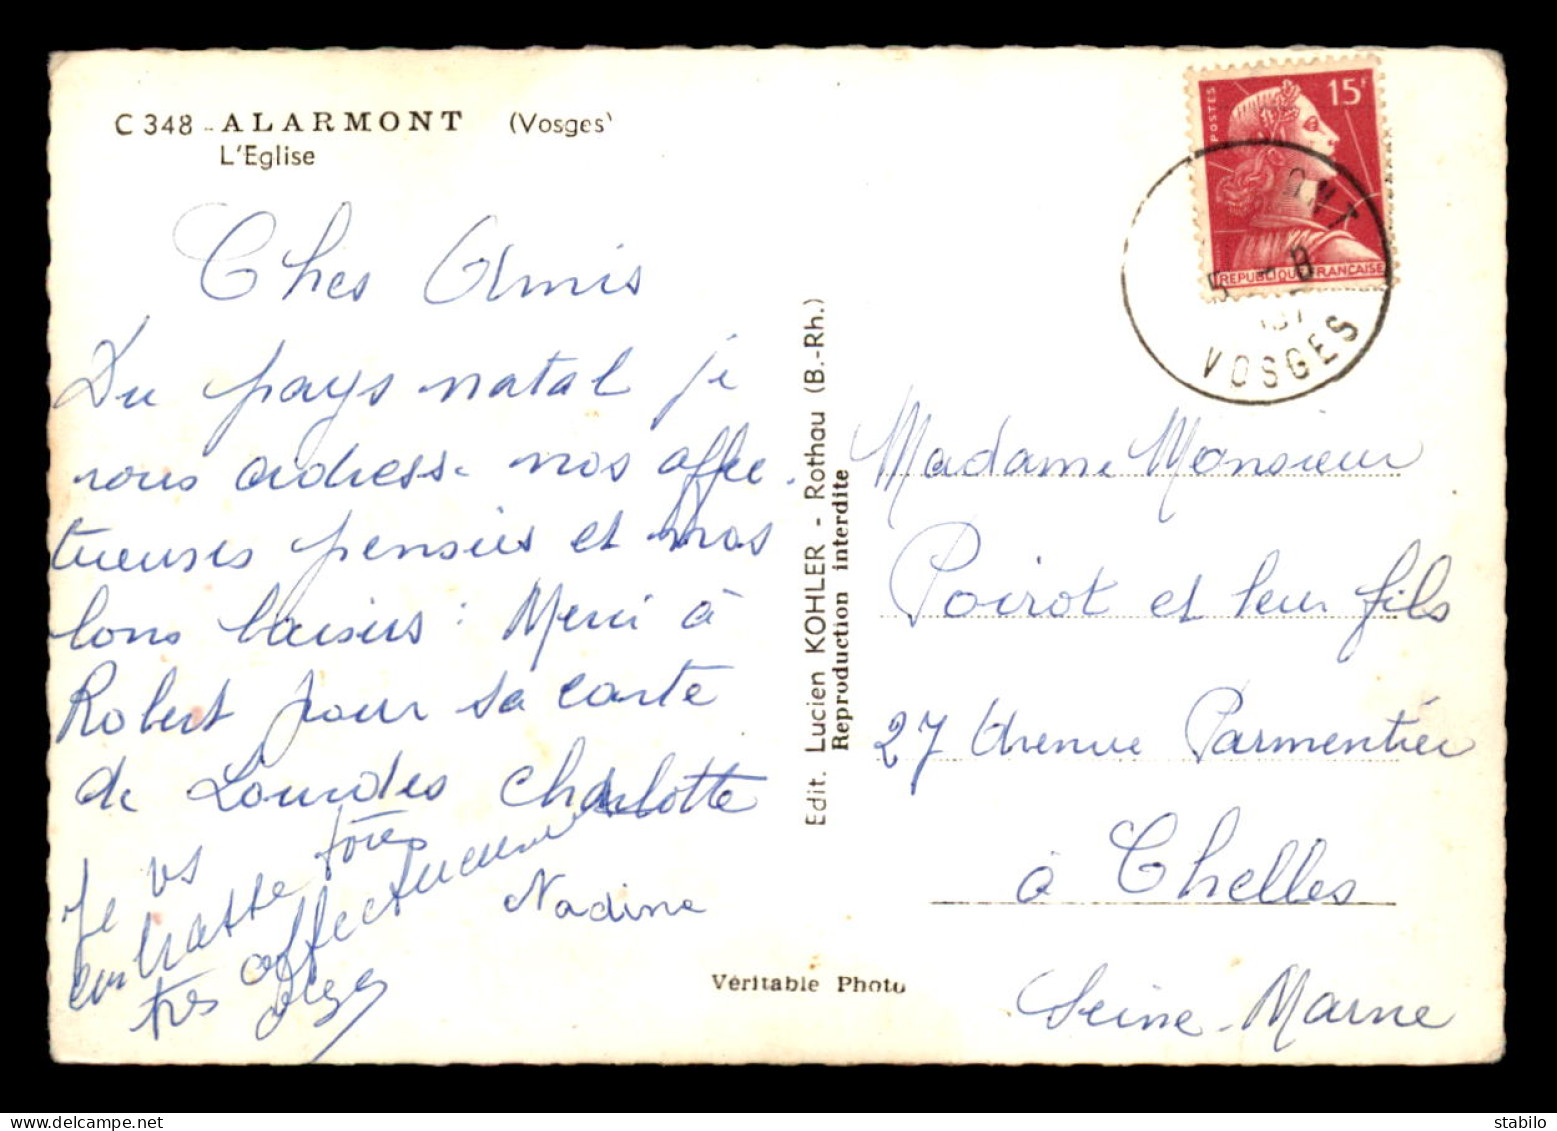 C 348 - ALARMONT (Vosges)
L'Eglise
Ches Amis
Du pays natal je
vous adresse nos affec
tueuses pensées et nos
bons baisers : Merci à
Robert pour sa carte
de Lourdes Charlotte
Je vs
embrasse tous
très affectueusement
Nadine
Véritable Photo
Edit. Lucien KOHLER - Rothau (B.-Rh.)
Reproduction interdite
POSTES
15F
REPUBLIQUE FRANCAISE
5 - 8
VOSGES
Madame Monsieur
Poirot et leur fils
27 Avenue Parmentier
à Chelles
Seine-Marne
stabilo